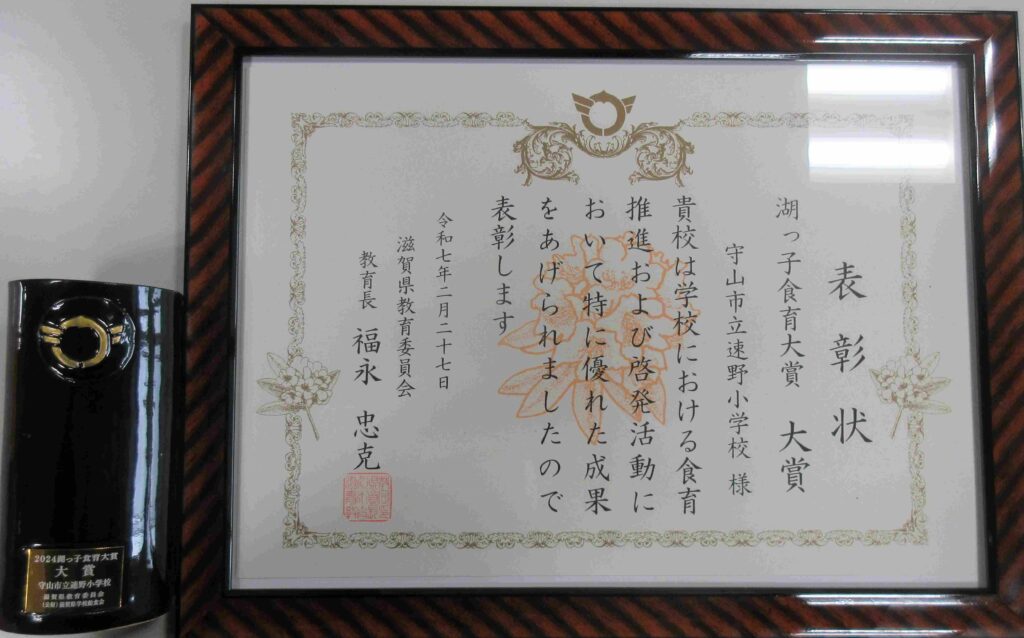 表彰状
湖っ子食育大賞 大賞
守山市立速野小学校 様
貴校は学校における食育
推進および啓発活動に
おいて特に優れた成果
をあげられましたので
表彰します
令和七年二月二十七日
滋賀県教育委員会
教育長 福永 忠克
2024湖っ子食育大賞
大賞
守山市立速野小学校
滋賀県教育委員会
(公財)滋賀県学校給食会